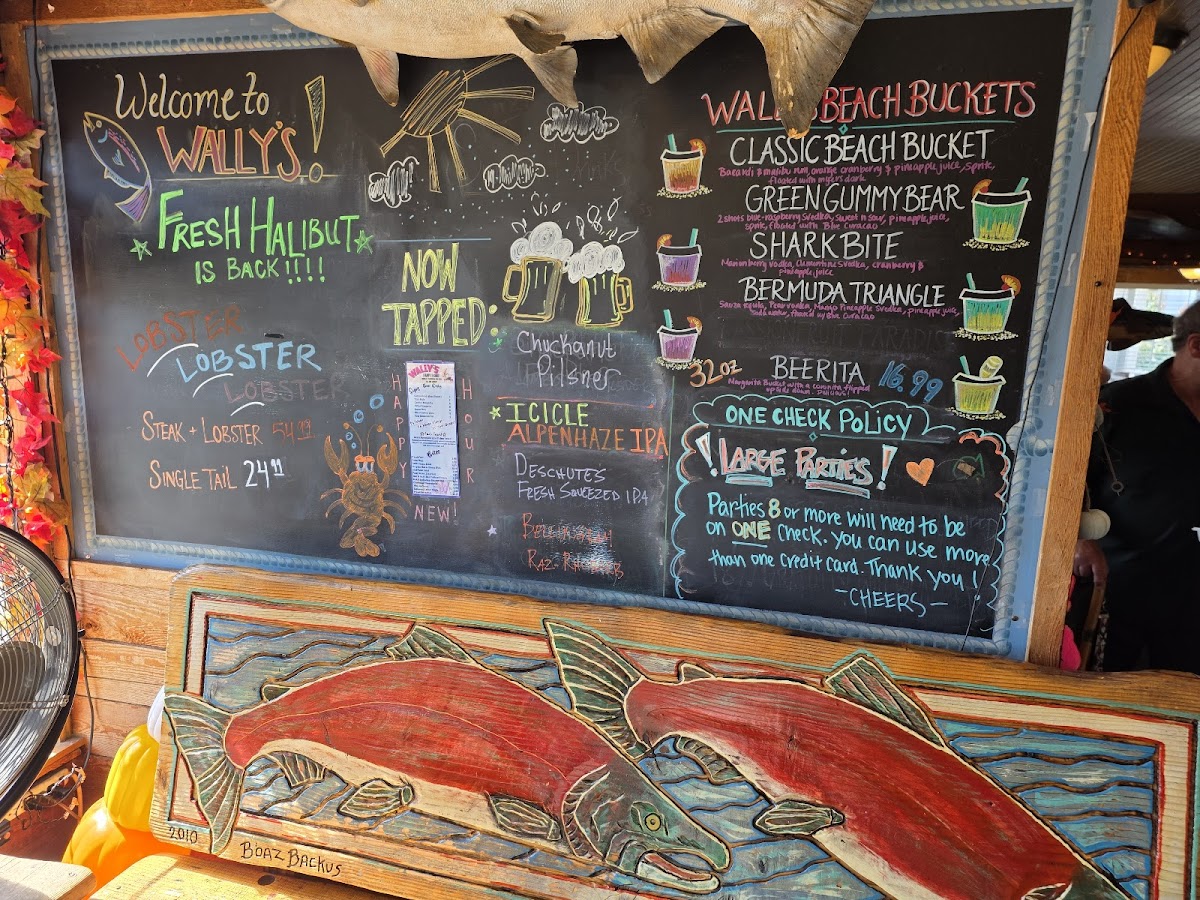 Welcome to
WALLY'S!
FRESH HALIBUT
IS BACK!!!!
LOBSTER
LOBSTER
LOBSTER
STEAK + LOBSTER 54.99
SINGLE TAIL 24.99
NOW
TAPPED:
Chuckanut
Pilsner
ICICLE
ALPENHAZE IPA
DESCHUTES
FRESH SQUEEZED IPA
HAPPY
HOUR
NEW!
WALLY'S
BEACH BUCKETS
CLASSIC BEACH BUCKET
Bacardi & malibu rum, orange cranberry & pineapple juice, sprite,
floated with myers dark
GREEN GUMMY BEAR
2 shots blue-raspberry Svedka, sweet n sour, pineapple juice,
sprite, floated with Blue Curacao
SHARK BITE
Marionberry vodka, Clementine Svedka, cranberry &
pineapple juice
BERMUDA TRIANGLE
Sauza tequila, Pear vodka, Mango Pineapple Svedka, pineapple juice,
Soda water, floated w/ Blue Curacao
32oz BEERITA 16.99
Margarita Bucket with a coronita flipped
upside down.
ONE CHECK POLICY
!LARGE PARTIES!
Parties 8 or more will need to be
on ONE check. You can use more
than one credit card. Thank you!
-CHEERS-
2010
BOAZ BACKUS